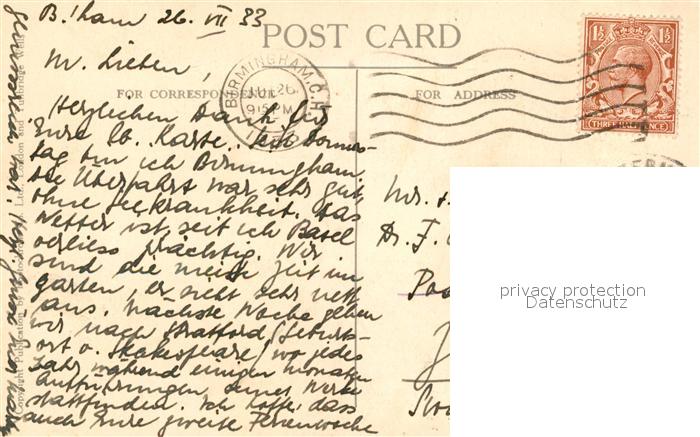 B'ham 26. VII 33
POST CARD
M. Lieben,
FOR CORRESPONDENCE
FOR ADDRESS
BIRMINGHAM
JUL 26
THREE HALFPENCE
1½ 1½
Herzlichen Dank für
Eure lb. Karte. Seit Donners-
tag bin ich Birmingham,
die Überfahrt war sehr gut,
ohne Seekrankheit. Das
Wetter ist, seit ich Basel
verliess prächtig. Wir
sind die meiste Zeit im
Garten, er sieht sehr nett
aus. Nächste Woche gehen
wir nach Stratford (Geburts-
ort v. Shakespeare) wo jedes
Jahr während einigen Monaten
Aufführungen seiner Werke
stattfinden. Ich hoffe, dass
auch Eure zweite Ferienwoche
Dr. F.
privacy protection
Datenschutz